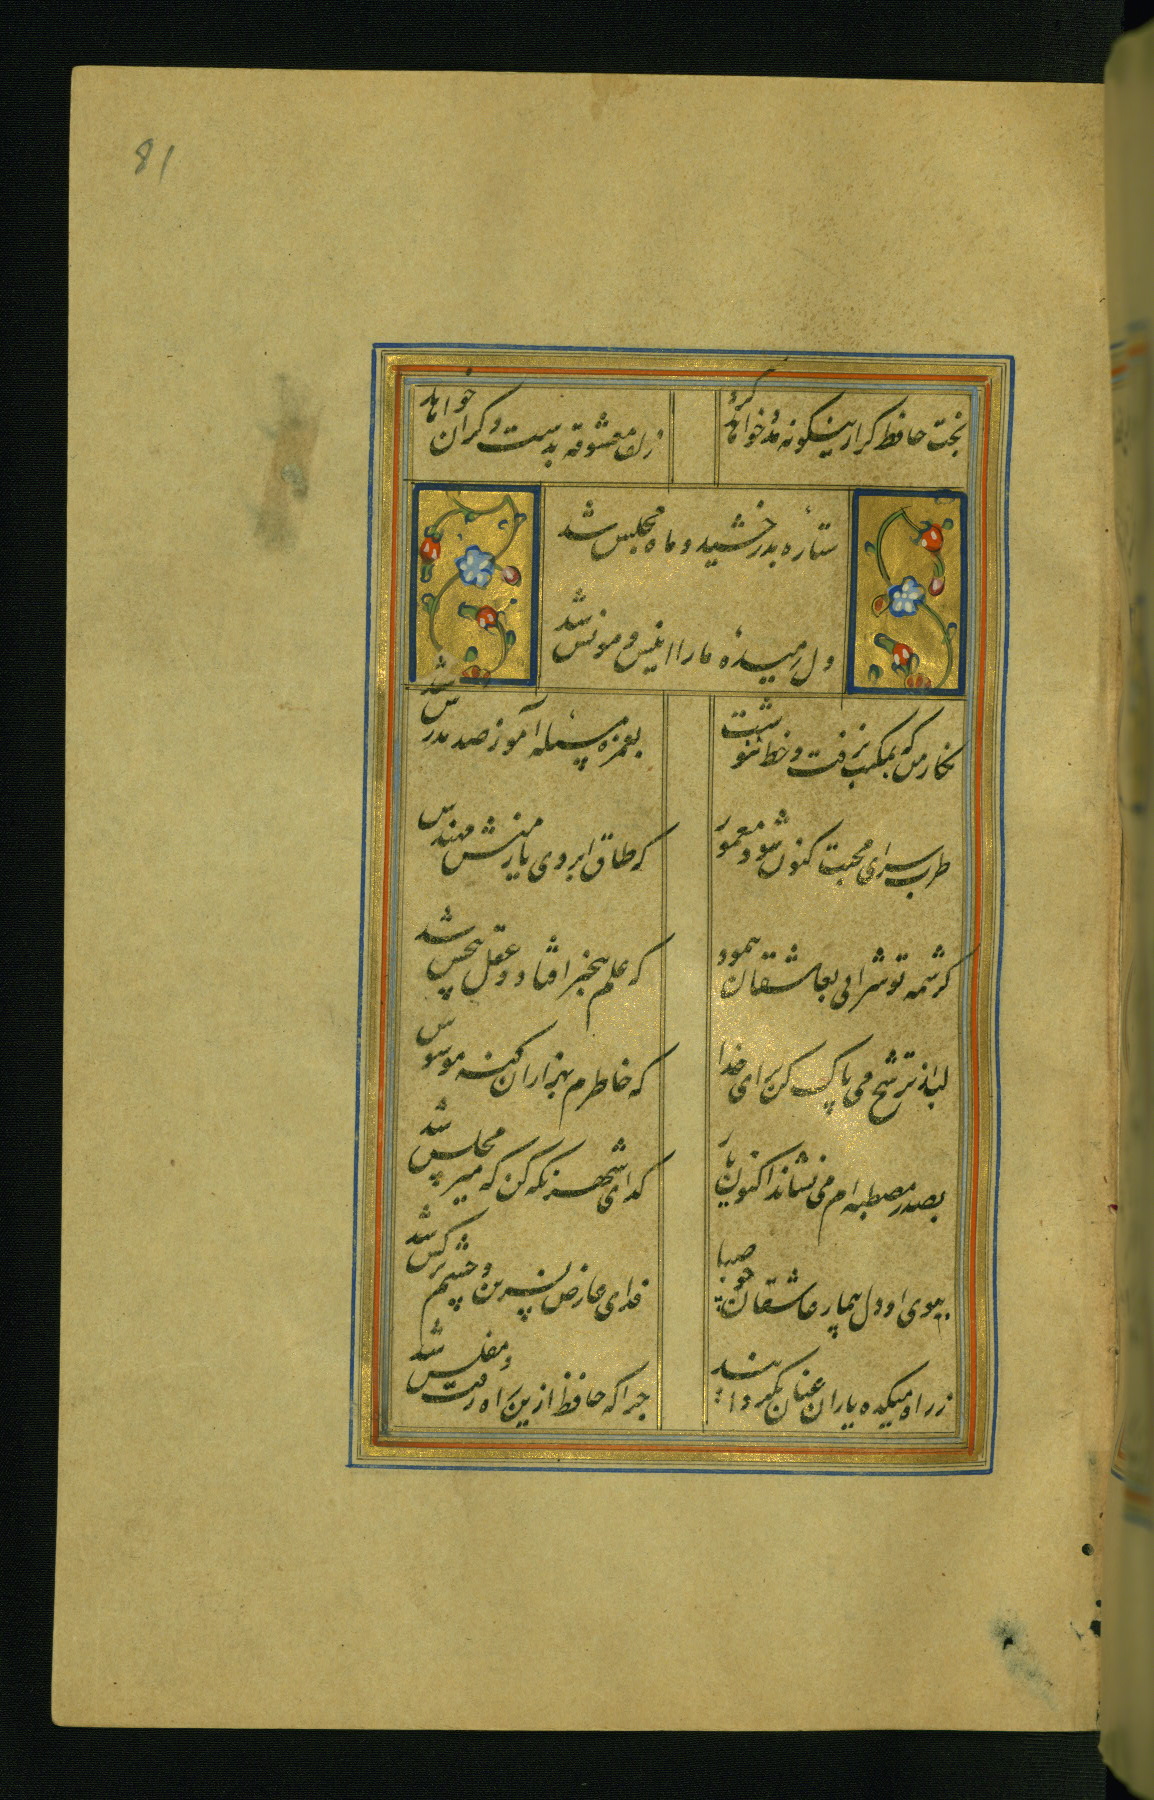 81
بخت حافظ گر ازینگونه مدد خواهد کرد
زلف معشوقه بدست دگران خواهد
ستاره بدرخشید و ماه مجلس شد
دل رمیدهٔ ما را انیس و مونس شد
نگار من که بمکتب نرفت و خط ننوشت
بغمزه مسئله آموز صد مدرس شد
طرب سرای محبت کنون شود معمور
که طاق ابروی یار منش مهندس
کرشمه تو شرابی بعاشقان پیمود
که علم بیخبر افتاد و عقل بیحس شد
لب از ترشح می پاک کن برای خدا
که خاطرم بهزاران گنه موسوس
بصدر مصطبه ام می نشاند اکنون یار
گدای شهر نگه کن که میر مجلس شد
ببوی او دل بیمار عاشقان چو صبا
فدای عارض نسرین و چشم نرگس شد
ز راه میکده یاران عنان بگردانید
چرا که حافظ ازین راه رفت و مفلس شد